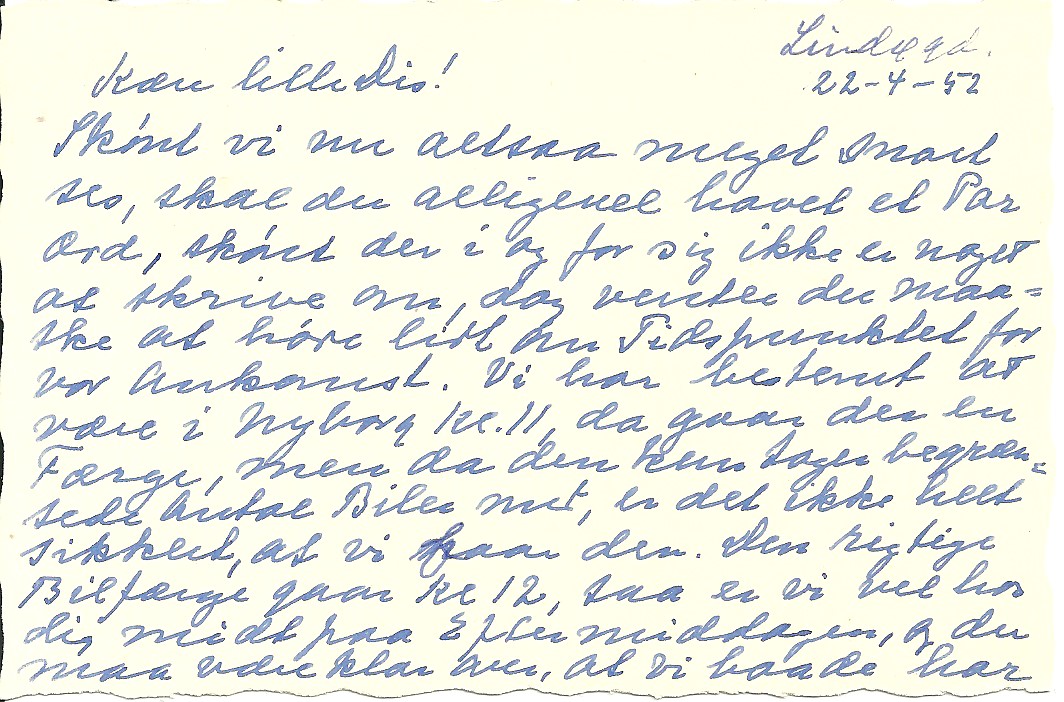 Lindøgd.
22-4-52
Kære lille Dis!
Skönt vi nu altsaa meget snart
ses, skal du alligevel havet et Par
Ord, skönt der i og for sig ikke er noget
at skrive om, dog venter du maa=
ske at höre lidt om Tidspunktet for
vor Ankomst. Vi har bestemt at
være i Nyborg Kl. 11, da gaar der en
Færge, men da den kun tager begræn=
sede Antal Biler med, er det ikke helt
sikkert, at vi faar den. Den rigtige
Bilfærge gaar Kl 12, saa er vi vel hos
dig midt paa Eftermiddagen, og du
maa være klar over, at vi baade har